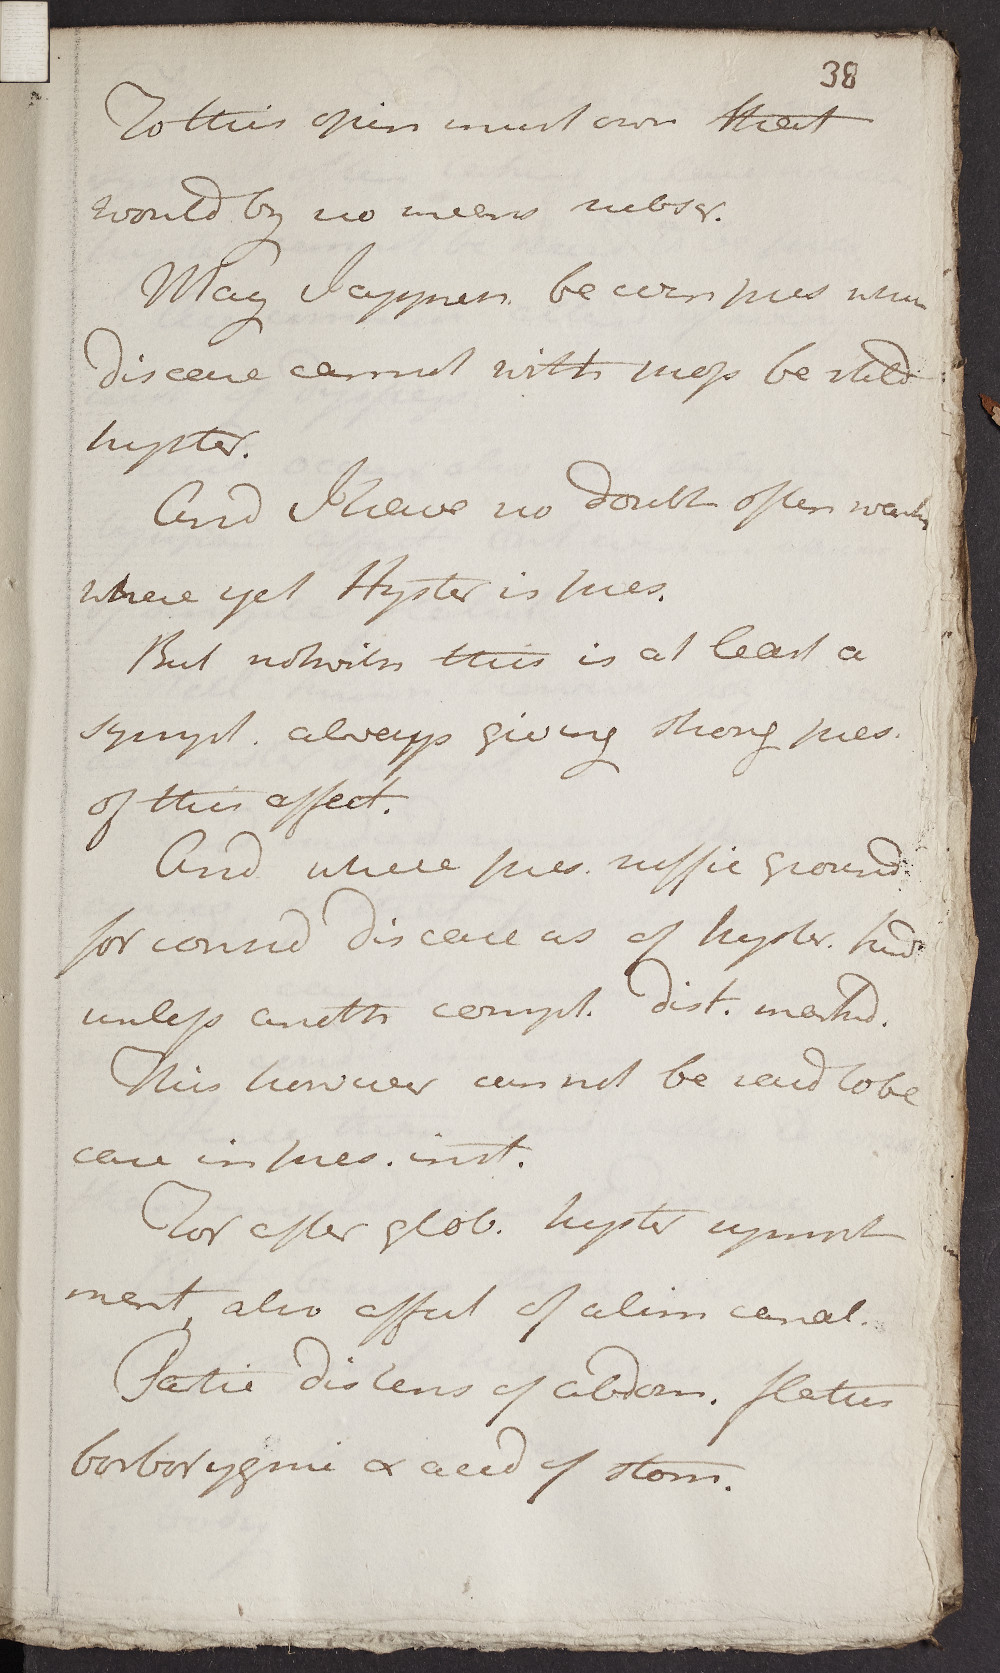 38
To this opin must own that
would by no means subscr.
May I apprehen. be even pres when
disease cannot with prop be stild
hyster.
And I have no doubt often wants
where yet Hyster is pres.
But notwith this is at least a
sympt. always giving strong pres.
of this affect.
And where pres. suffic ground
for consid disease as of hyster. kind
unless anoth compl. dist. markd.
This however cannot be said to be
case in pres. inst.
For after glob. hyster sympt
ment, also affect of alim canal.
Partic distens of abdom. flatus
borborygmi & acid of stom.